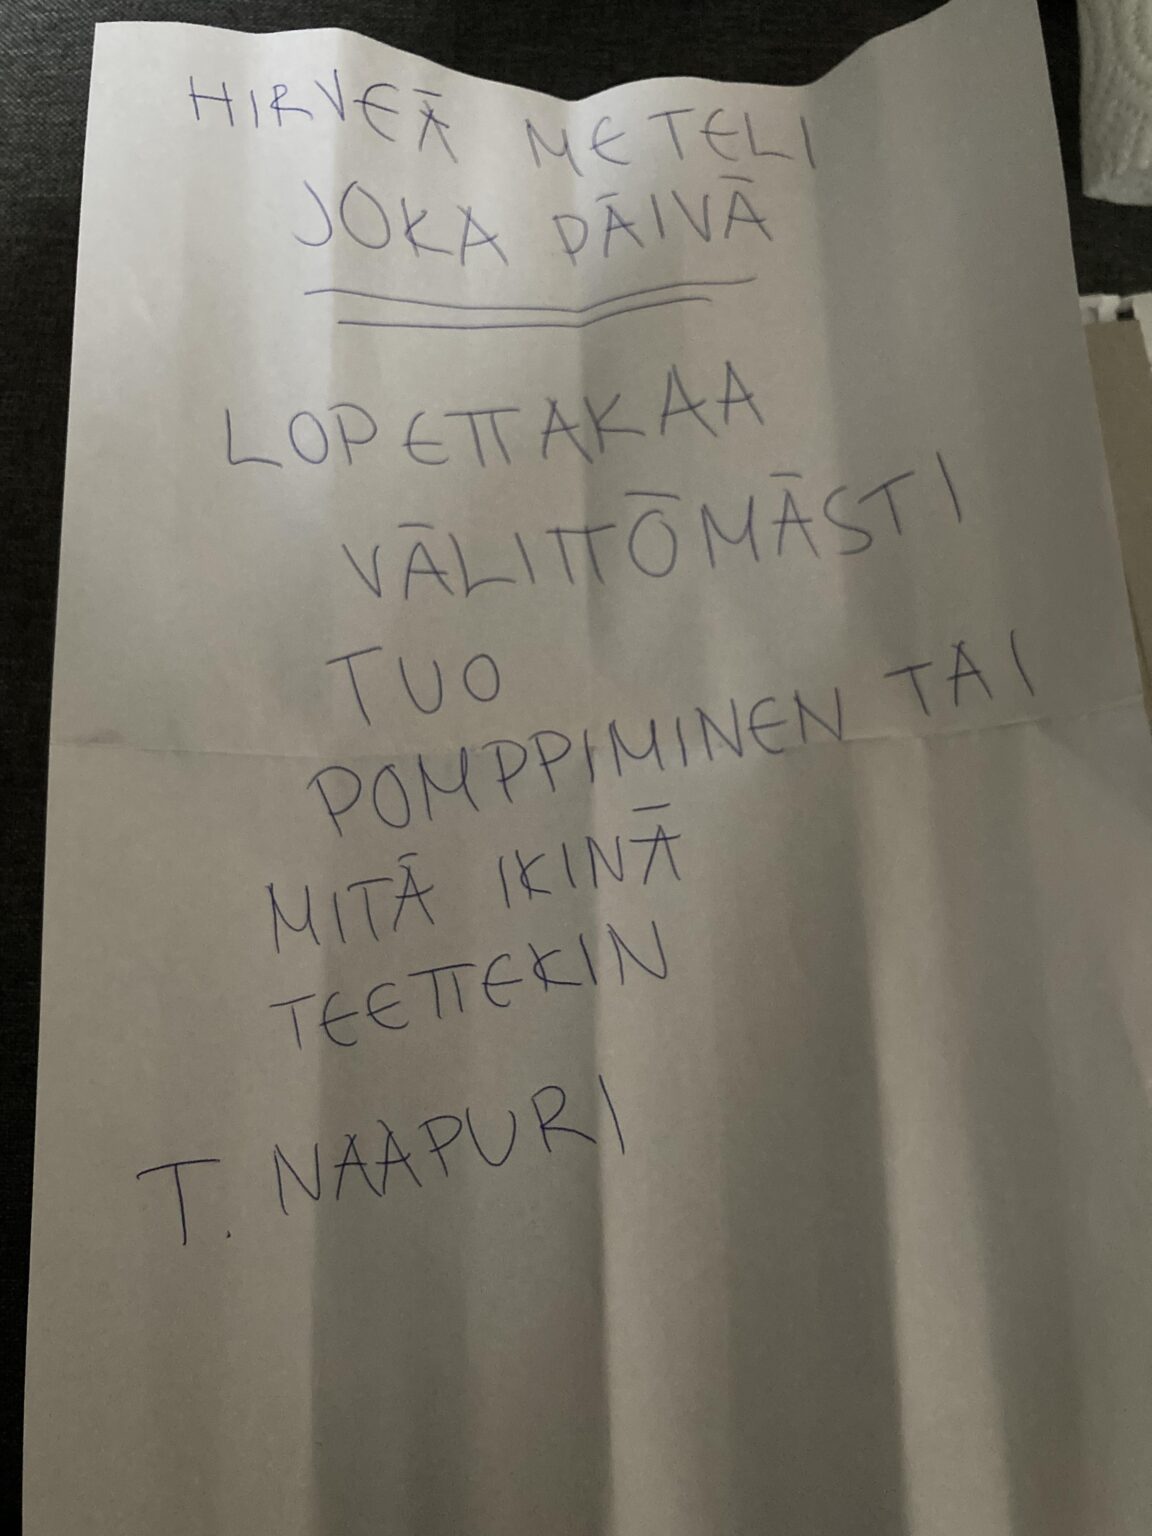 HIRVEÄ METELI
JOKA PÄIVÄ
LOPETTAKAA
VÄLITTÖMÄSTI
TUO
POMPPIMINEN TAI
MITÄ IKINÄ
TEETTEKIN
T. NAAPURI